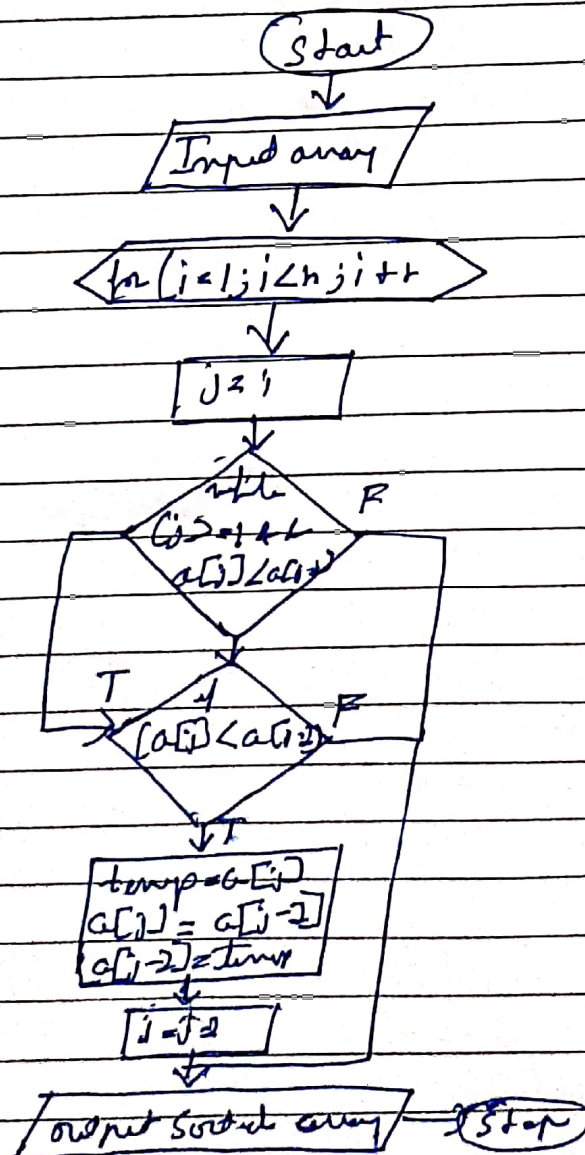 Start
Input array
for (i=1; i<n; i++
j = i
while
F
(j>=1 &&
a[j]<a[j-1]
T
if
F
(a[j] < a[j-2])
T
temp=a[j]
a[j] = a[j-2]
a[j-2]=temp
j=j-2
output Sorted array
Stop